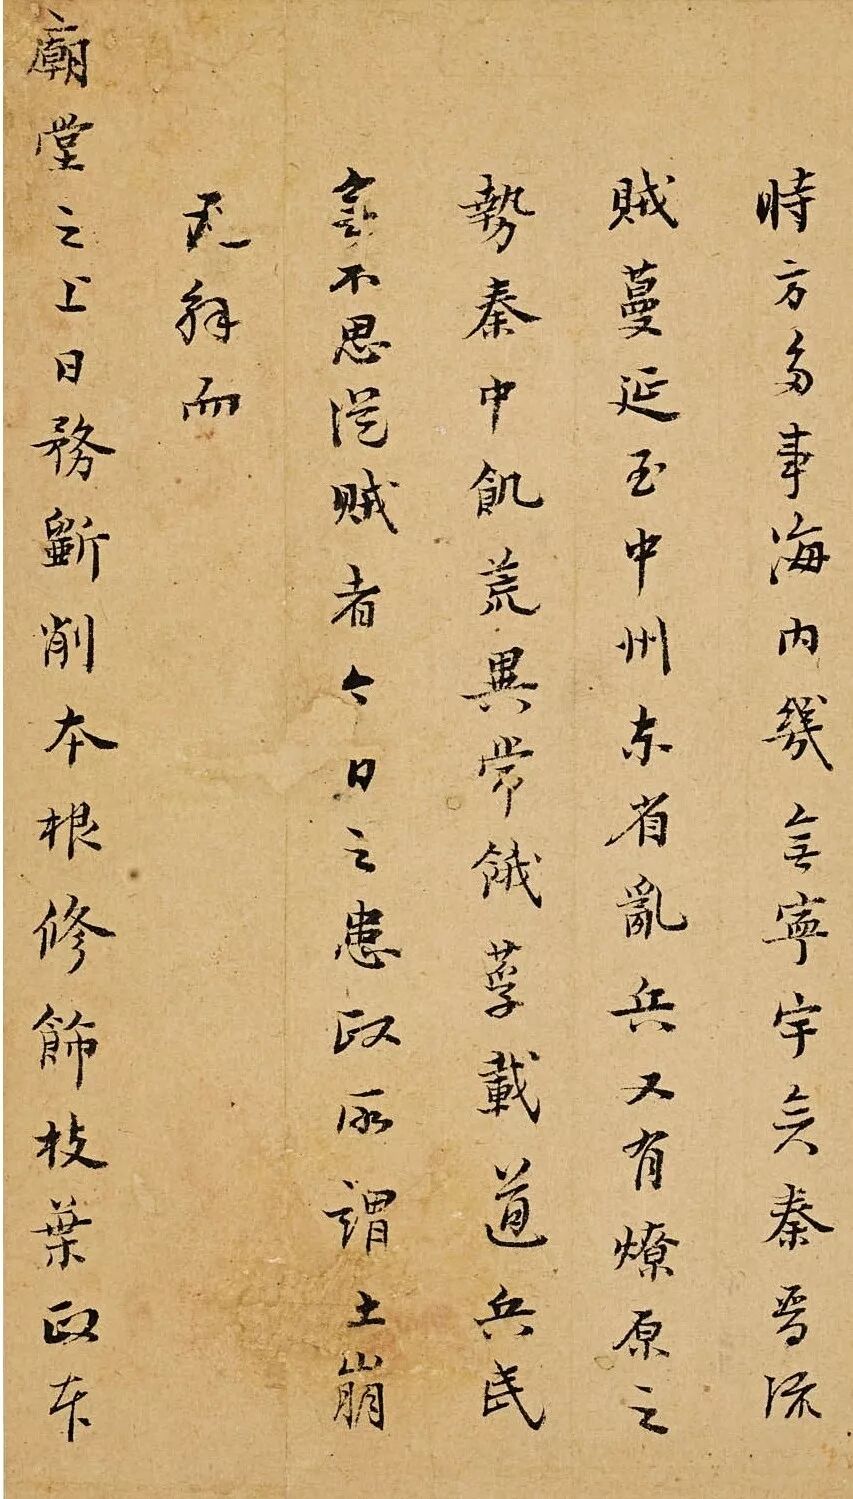 時方多事海内幾無寧宇矣秦晉流
賊蔓延至中州东省亂兵又有燎原之
勢秦中飢荒異常餓莩載道兵民
不思從賊者今日之患政所謂土崩
瓦解而
廟堂之上日務斵削本根修飾枝葉政本